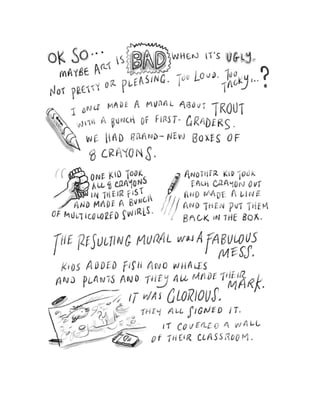 OK SO...
MAYBE ART IS BAD WHEN IT'S UGLY.
NOT PRETTY OR PLEASING. TOO LOUD. TOO TACKY,...?
I ONCE MADE A MURAL ABOUT TROUT
WITH A BUNCH OF FIRST-GRADERS.
WE HAD BRAND-NEW BOXES OF
8 CRAYONS.
ONE KID TOOK
ALL 8 CRAYONS
IN THEIR FIST
AND MADE A BUNCH
OF MULTICOLORED SWIRLS.
ANOTHER KID TOOK
EACH CRAYON OUT
AND MADE A LINE
AND THEN PUT THEM
BACK IN THE BOX.
THE RESULTING MURAL WAS A FABULOUS
MESS.
KIDS ADDED FISH AND WHALES
AND PLANTS AND THEY ALL MADE THEIR
MARK.
IT WAS GLORIOUS.
THEY ALL SIGNED IT.
IT COVERED A WALL
OF THEIR CLASSROOM.